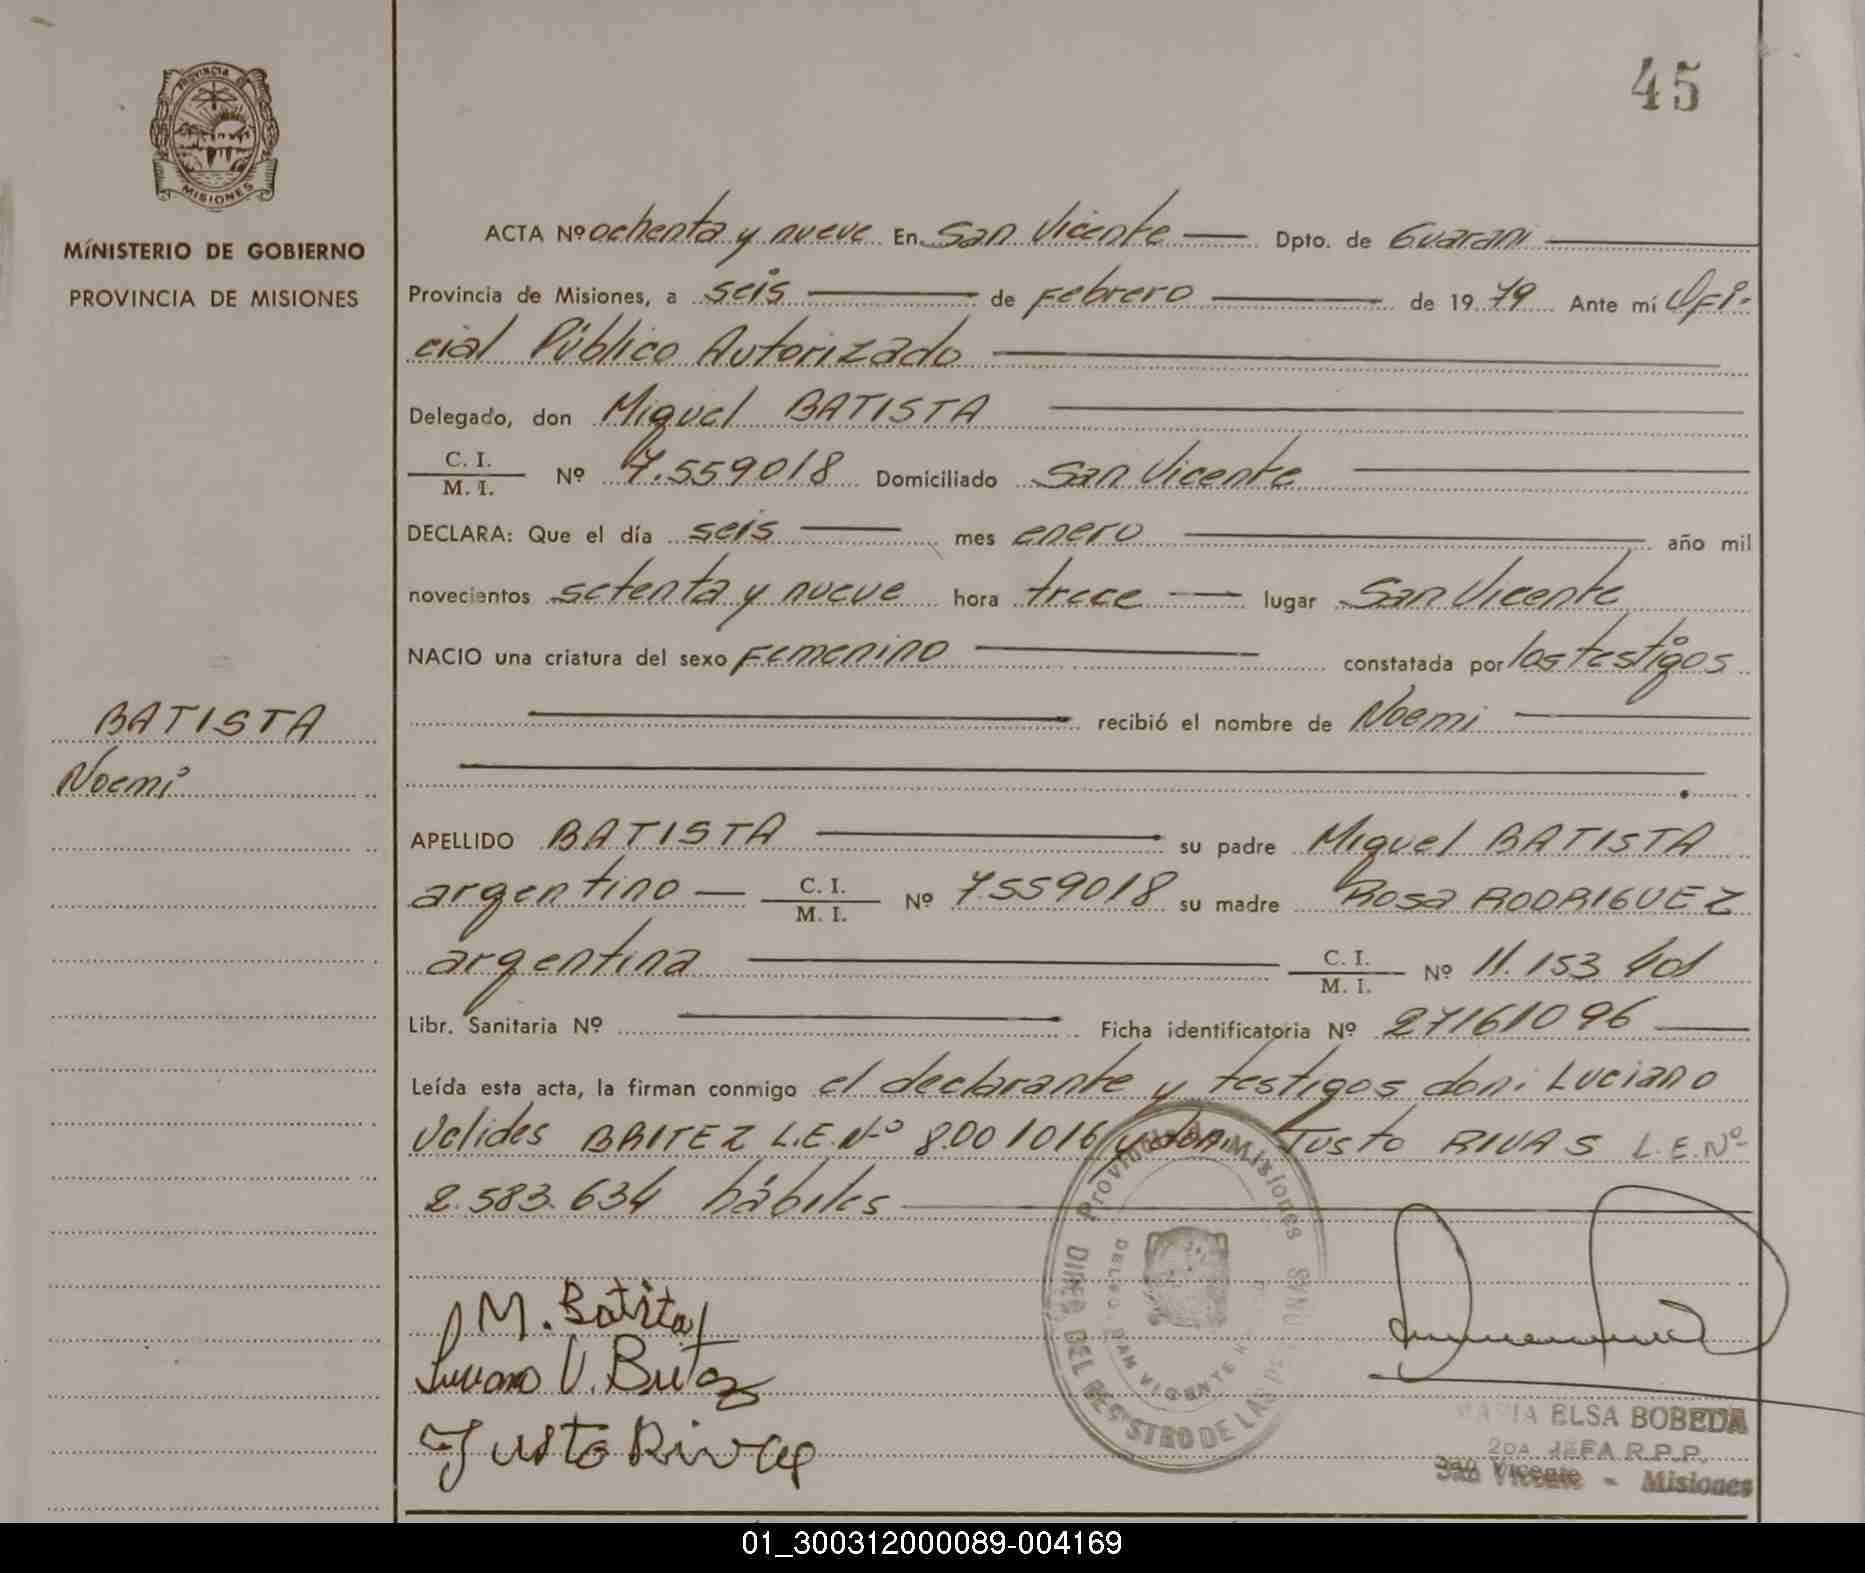 45
PROVINCIA DE
MISIONES
MINISTERIO DE GOBIERNO
PROVINCIA DE MISIONES
BATISTA
Noemi
ACTA Nº ochenta y nueve En San Vicente — Dpto. de Guarani —
Provincia de Misiones, a seis — de Febrero — de 19 79 Ante mí Ofi-
cial Público Autorizado —
Delegado, don Miguel BATISTA —
C. I.
M. I. Nº 7.559018 Domiciliado San Vicente —
DECLARA: Que el día seis — mes enero — año mil
novecientos setenta y nueve hora trece — lugar San Vicente
NACIO una criatura del sexo Femenino — constatada por los testigos
— recibió el nombre de Noemi —
APELLIDO BATISTA — su padre Miguel BATISTA
argentino — C. I. / M. I. Nº 7559018 su madre Rosa RODRIGUEZ
argentina — C. I. / M. I. Nº 11.153.401
Libr. Sanitaria Nº — Ficha identificatoria Nº 27161096 —
Leída esta acta, la firman conmigo el declarante y testigos don: Luciano
Velides BRITEZ L.E.Nº 8.001016 y don: Justo RIVAS L.E.Nº
2.583.634 hábiles —
M. Batita
V. Britez
Justo Rivas
Provincia de Misiones
DEL REGISTRO DE LAS PERSONAS
SAN VICENTE
MARIA ELSA BOBEDA
2DA JEFA R.P.P.
San Vicente - Misiones
01_300312000089-004169